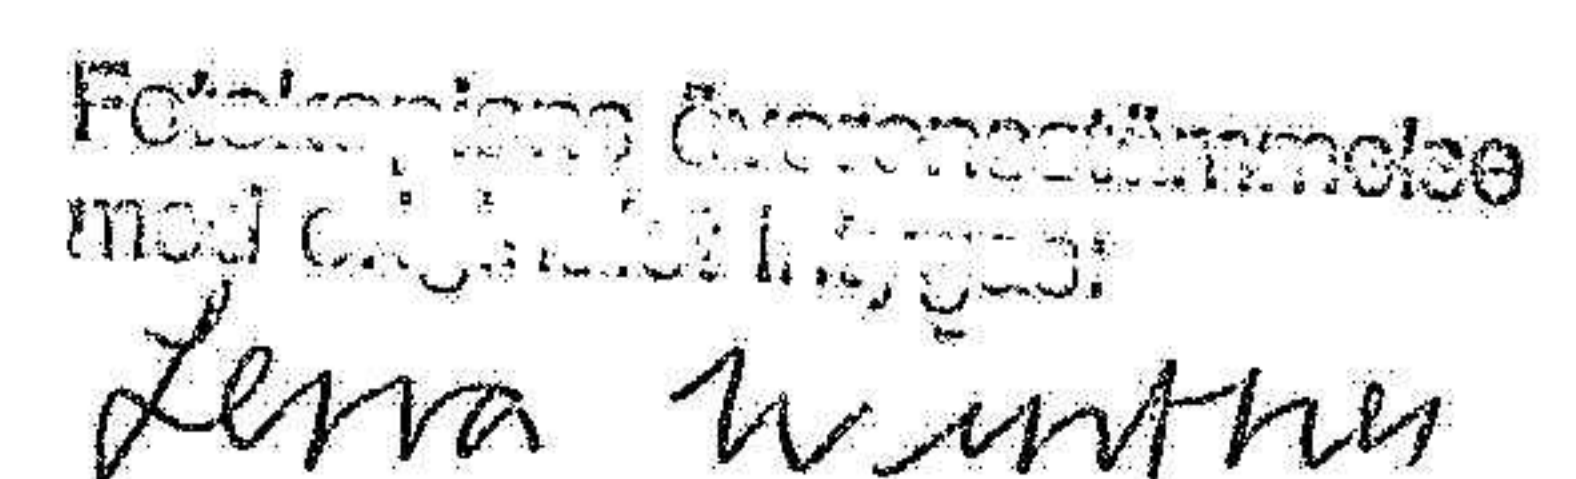 Fotokopians överensstämmelse
med originalet intygas:
Lena